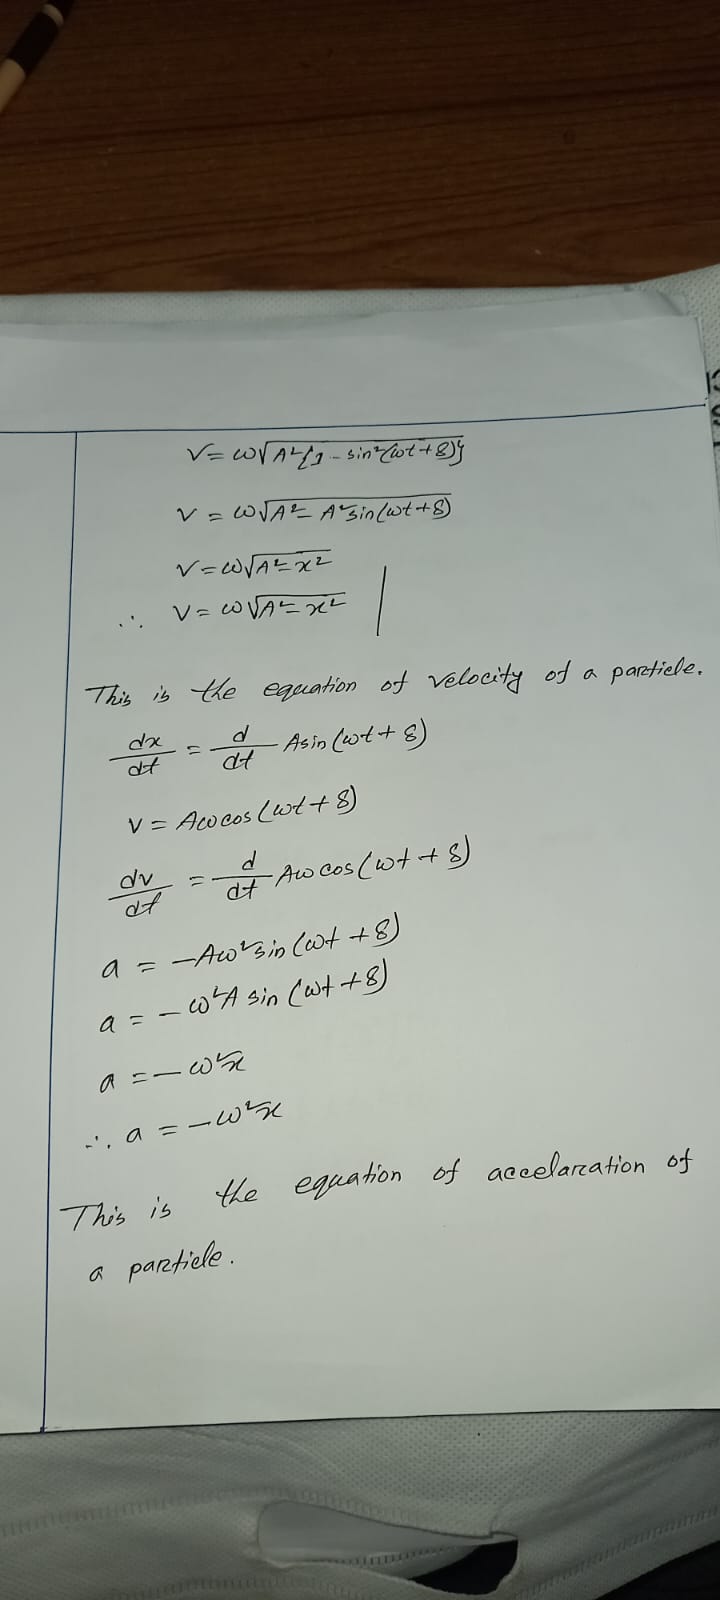 V = ω√A²{1 - sin²(ωt + δ)}
V = ω√A² - A²sin(ωt + δ)
V = ω√A² - x²
∴ V = ω√A² - x²
This is the equation of velocity of a particle.
dx/dt = d/dt Asin(ωt + δ)
V = Aωcos(ωt + δ)
dv/dt = d/dt Aωcos(ωt + δ)
a = -Aω²sin(ωt + δ)
a = -ω²A sin(ωt + δ)
a = -ω²x
∴ a = -ω²x
This is the equation of accelaration of
a particle.